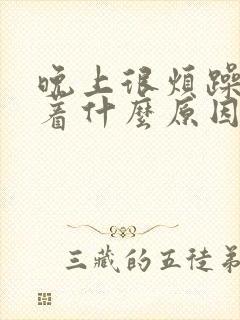 晚上很煩躁
着什麼原因
三藏的五徒弟